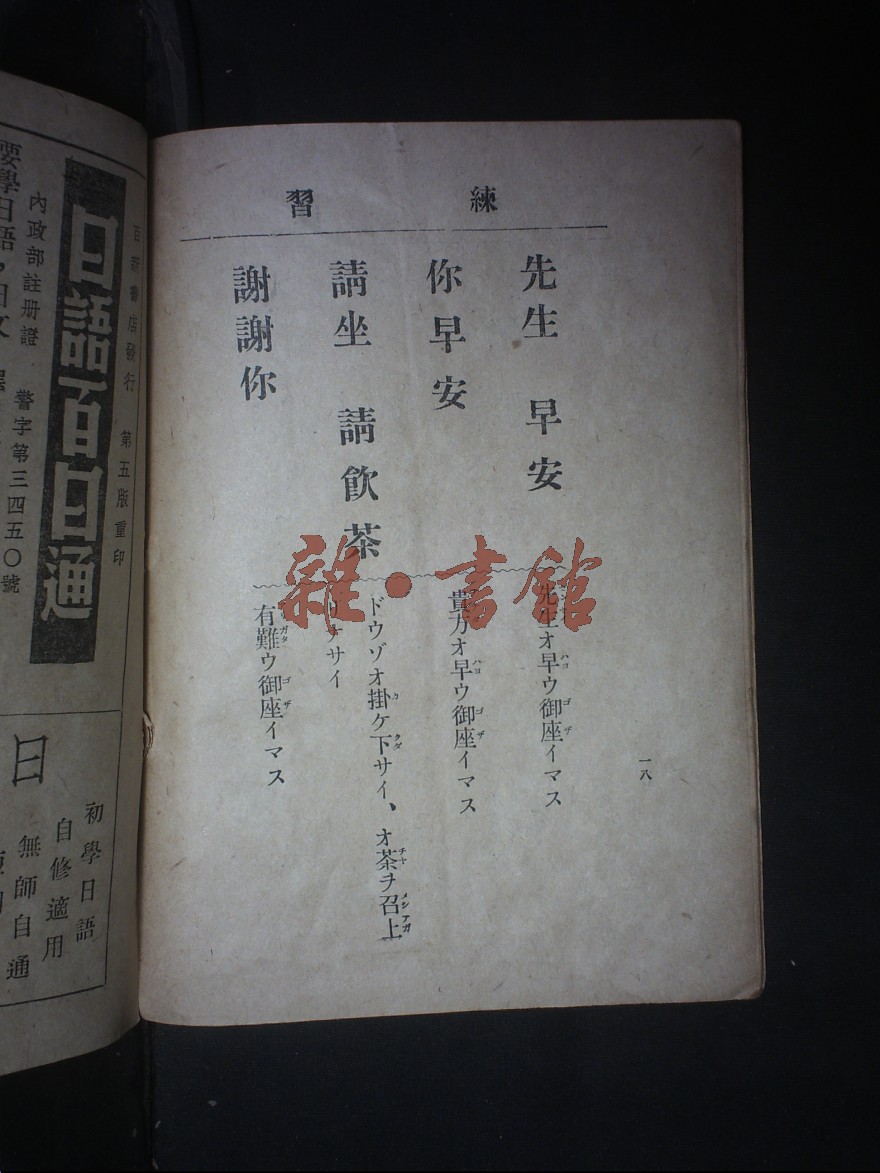 練習
先生 早安
先生オ早ウ御座イマス
ハヨ ゴザ
你早安
貴方オ早ウ御座イマス
ハヨ ゴザ
請坐 請飮茶
ドウゾオ掛ケ下サイ、オ茶ヲ召上
カ クダ チヤ メシアガ
ナサイ
謝謝你
有難ウ御座イマス
ガタ ゴザ
一八
雜·書館
百新書店發行 第五版重印
日語百日通
內政部註册證 警字第三四五〇號
要學日語，日文
初學日語
自修適用
無師自通
日